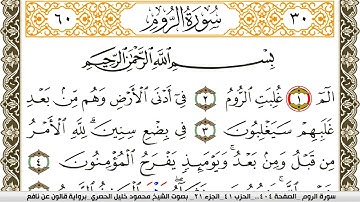 ٣٠ سُورَةُ الرُّومِ ٦٠
بِسْمِ اللَّهِ الرَّحْمَٰنِ الرَّحِيمِ
أَلَمِّ ١ غُلِبَتِ الرُّومُ ٢ فِي أَدْنَى الْأَرْضِ وَهُم مِّنۢ بَعْدِ
غَلَبِهِمْ سَيَغْلِبُونَ ٣ فِي بِضْعِ سِنِينَ لِلَّهِ الْأَمْرُ
مِن قَبْلُ وَمِنۢ بَعْدُ وَيَوْمَئِذٍ يَفْرَحُ الْمُؤْمِنُونَ ٤
سورة الروم_ الصفحة ٤٠٤_ الحزب ٤١_ الجزء ٢١_ بصوت الشيخ محمود خليل الحصري_ برواية قالون عن نافع